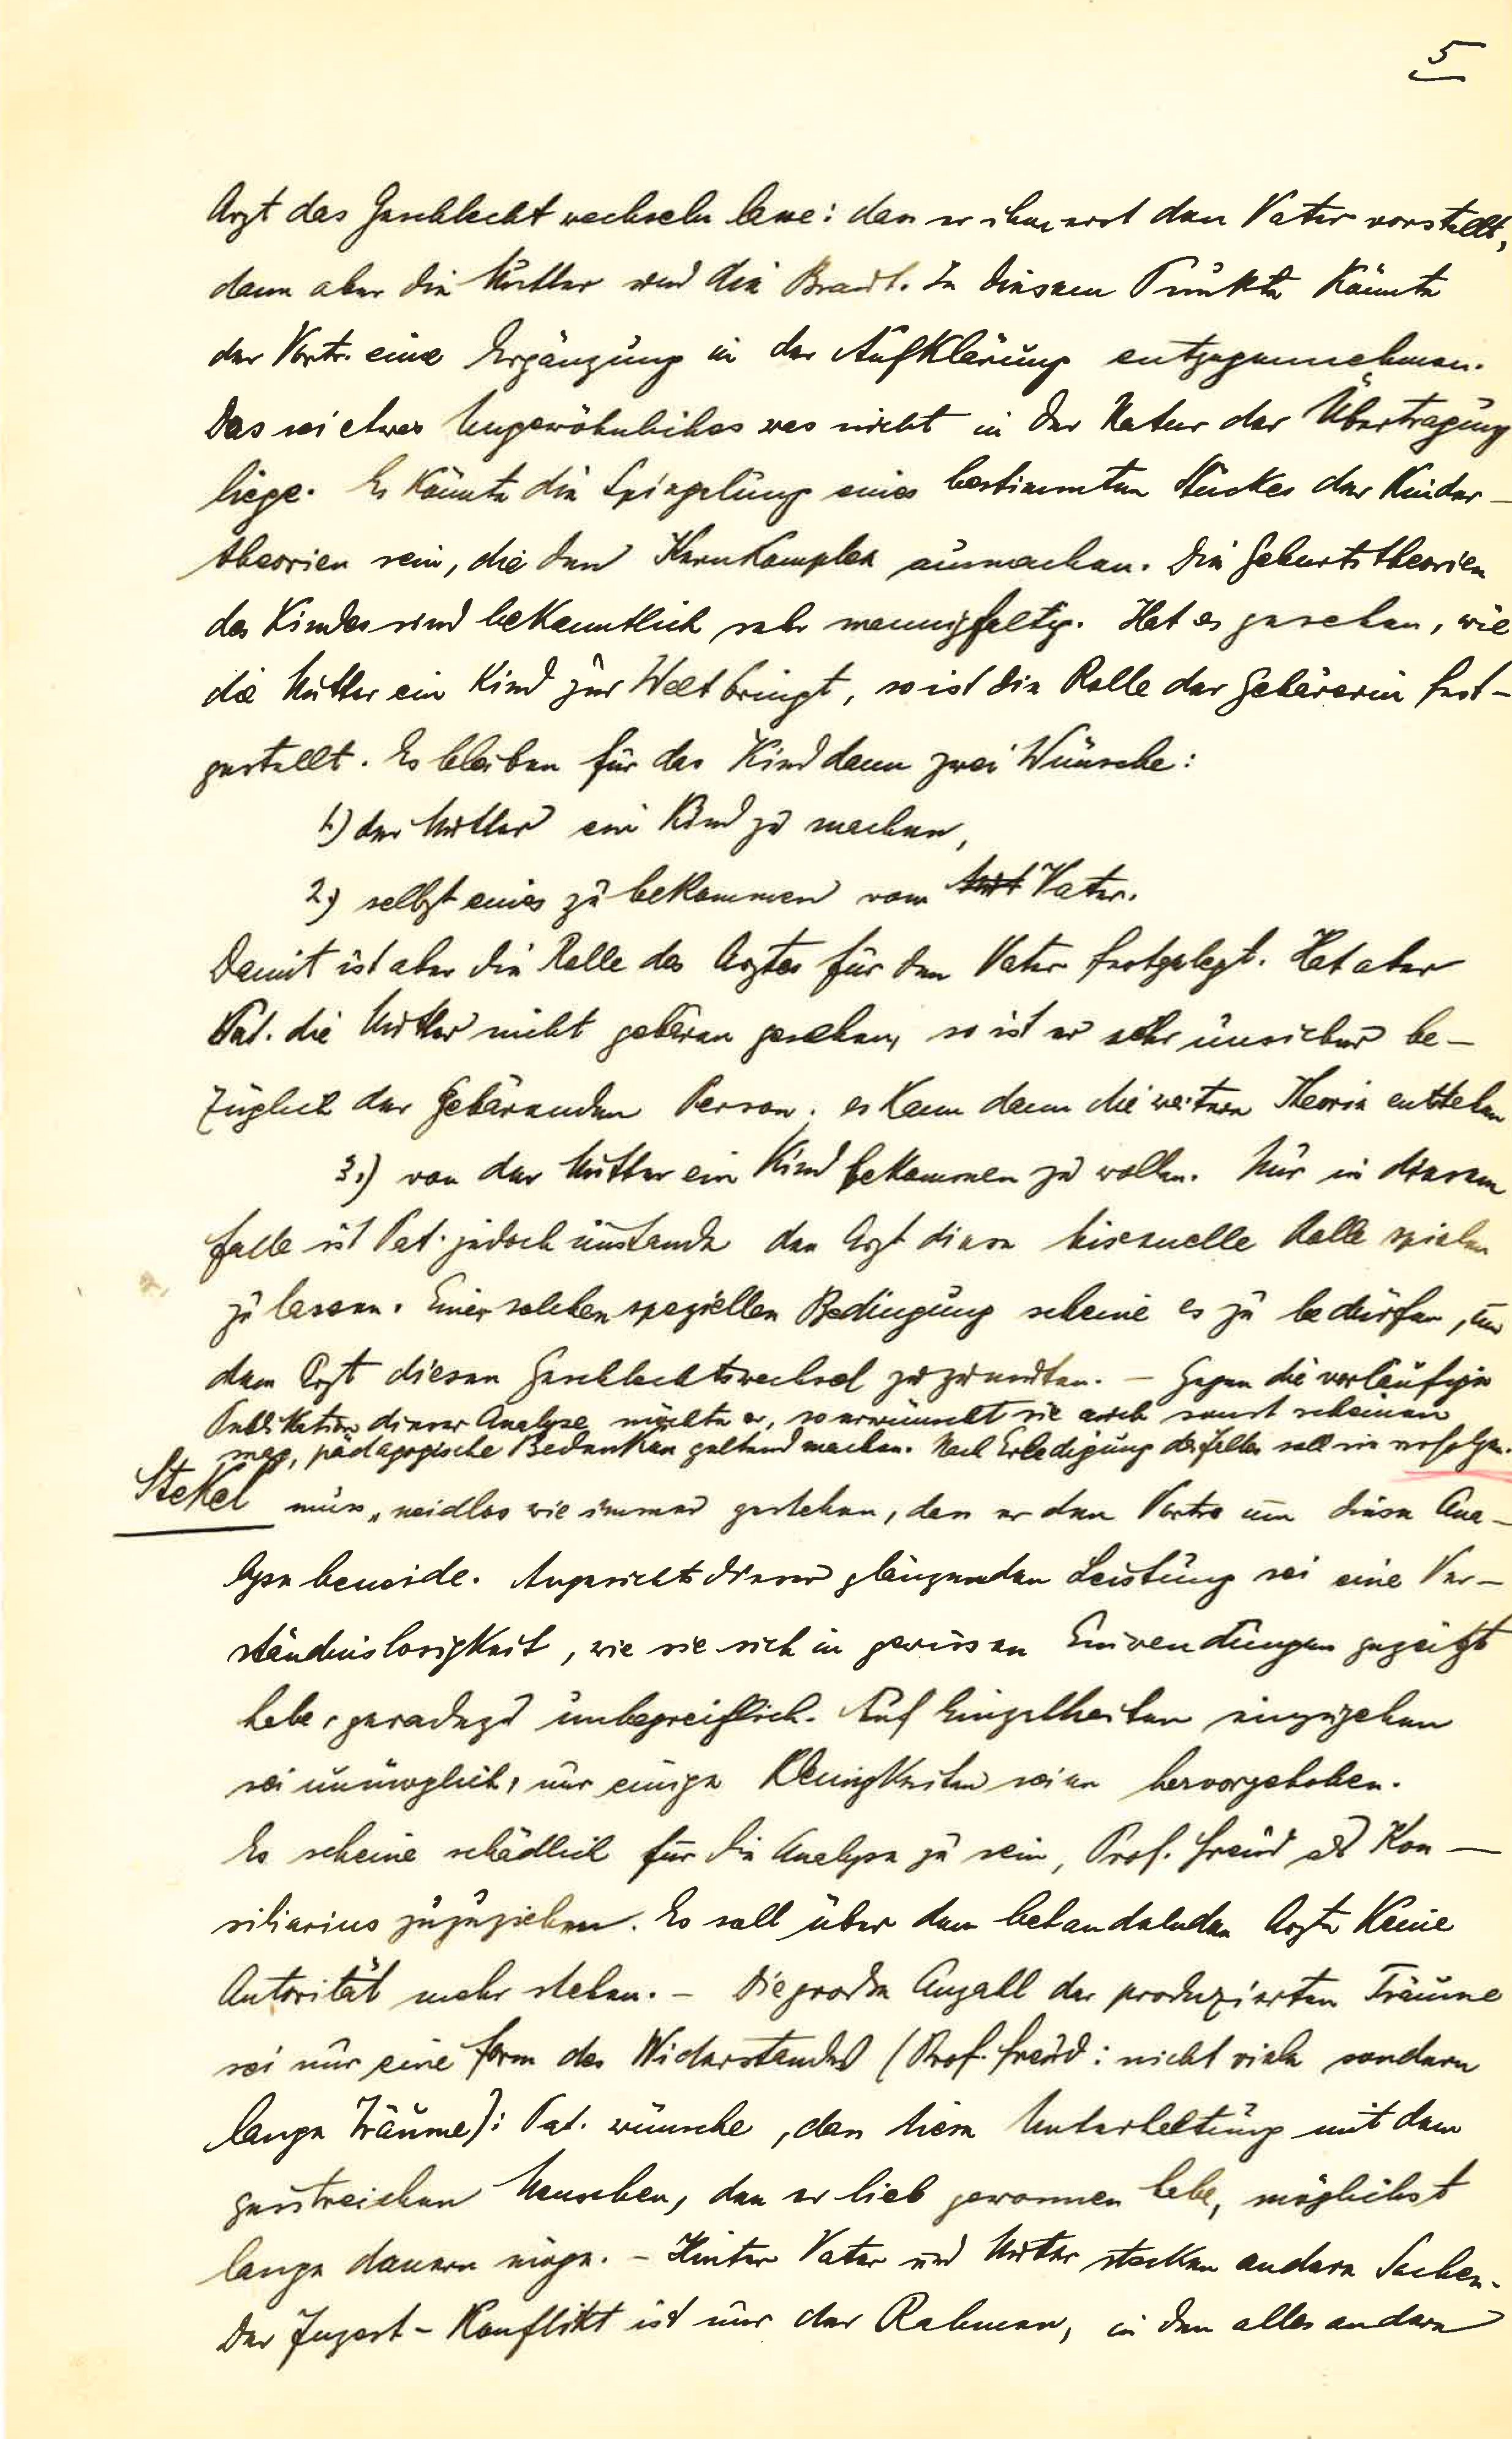 5
Arzt das Geschlecht wechseln lasse: dass er ihm erst den Vater vorstellt,
dann aber die Mutter und die Braut. In diesem Punkte könnte
der Vortr. eine Ergänzung in der Aufklärung entgegennehmen.
Das sei etwas Ungewöhnliches was nicht in der Natur der Übertragung
liege. Es könnte die Spiegelung eines bestimmten Stückes der Kinder-
theorien sein, die den Kernkomplex ausmachen. Die Geburtstheorien
des Kindes sind bekanntlich sehr mannigfaltig. Hat es gesehen, wie
die Mutter ein Kind zur Welt bringt, so ist die Rolle der Gebärerin fest-
gestellt. Es bleiben für das Kind dann zwei Wünsche:
1.) der Mutter ein Kind zu machen,
2.) selbst eines zu bekommen vom Vater.
Damit ist aber die Rolle des Arztes für den Vater festgelegt. Hat aber
Pat. die Mutter nicht gebären gesehen, so ist er sehr unsicher be-
züglich der gebärenden Person; es kann dann die weitere Theorie entstehen
3.) von der Mutter ein Kind bekommen zu wollen. Nur in diesem
Falle ist Pat. jedoch imstande den Arzt diese bisexuelle Rolle spielen
zu lassen. Einer solchen speziellen Bedingung scheine es zu bedürfen, um
dem Arzt diesen Geschlechtswechsel zuzumuten. – Gegen die vorläufige
Publikation dieser Analyse möchte er, so erwünscht sie auch sonst scheinen
mag, pädagogische Bedenken geltend machen. Nach Erledigung des Falles soll sie erfolgen.
Stekel muss, neidlos wie immer gestehen, dass er den Vortr. um diese Ana-
lyse beneide. Angesichts dieser glänzenden Leistung sei eine Ver-
ständnislosigkeit, wie sie sich in gewissen Einwendungen gezeigt
habe, geradezu unbegreiflich. Auf Einzelheiten einzugehen
sei unmöglich, nur einige Kleinigkeiten seien hervorgehoben.
Es scheine schädlich für die Analyse zu sein, Prof. Freud als Kon-
siliarius zuzuziehen. Es soll über dem behandelnden Arzte keine
Autorität mehr stehen. – Die große Anzahl der produzierten Träume
sei nur eine Form des Widerstandes (Prof. Freud: nicht viele sondern
lange Träume): Pat. wünsche, dass diese Unterhaltung mit dem
geistreichen Menschen, den er lieb gewonnen habe, möglichst
lange dauern möge. – Hinter Vater und Mutter stecken andere Sachen.
Der Inzest-Konflikt ist nur der Rahmen, in den alles andere